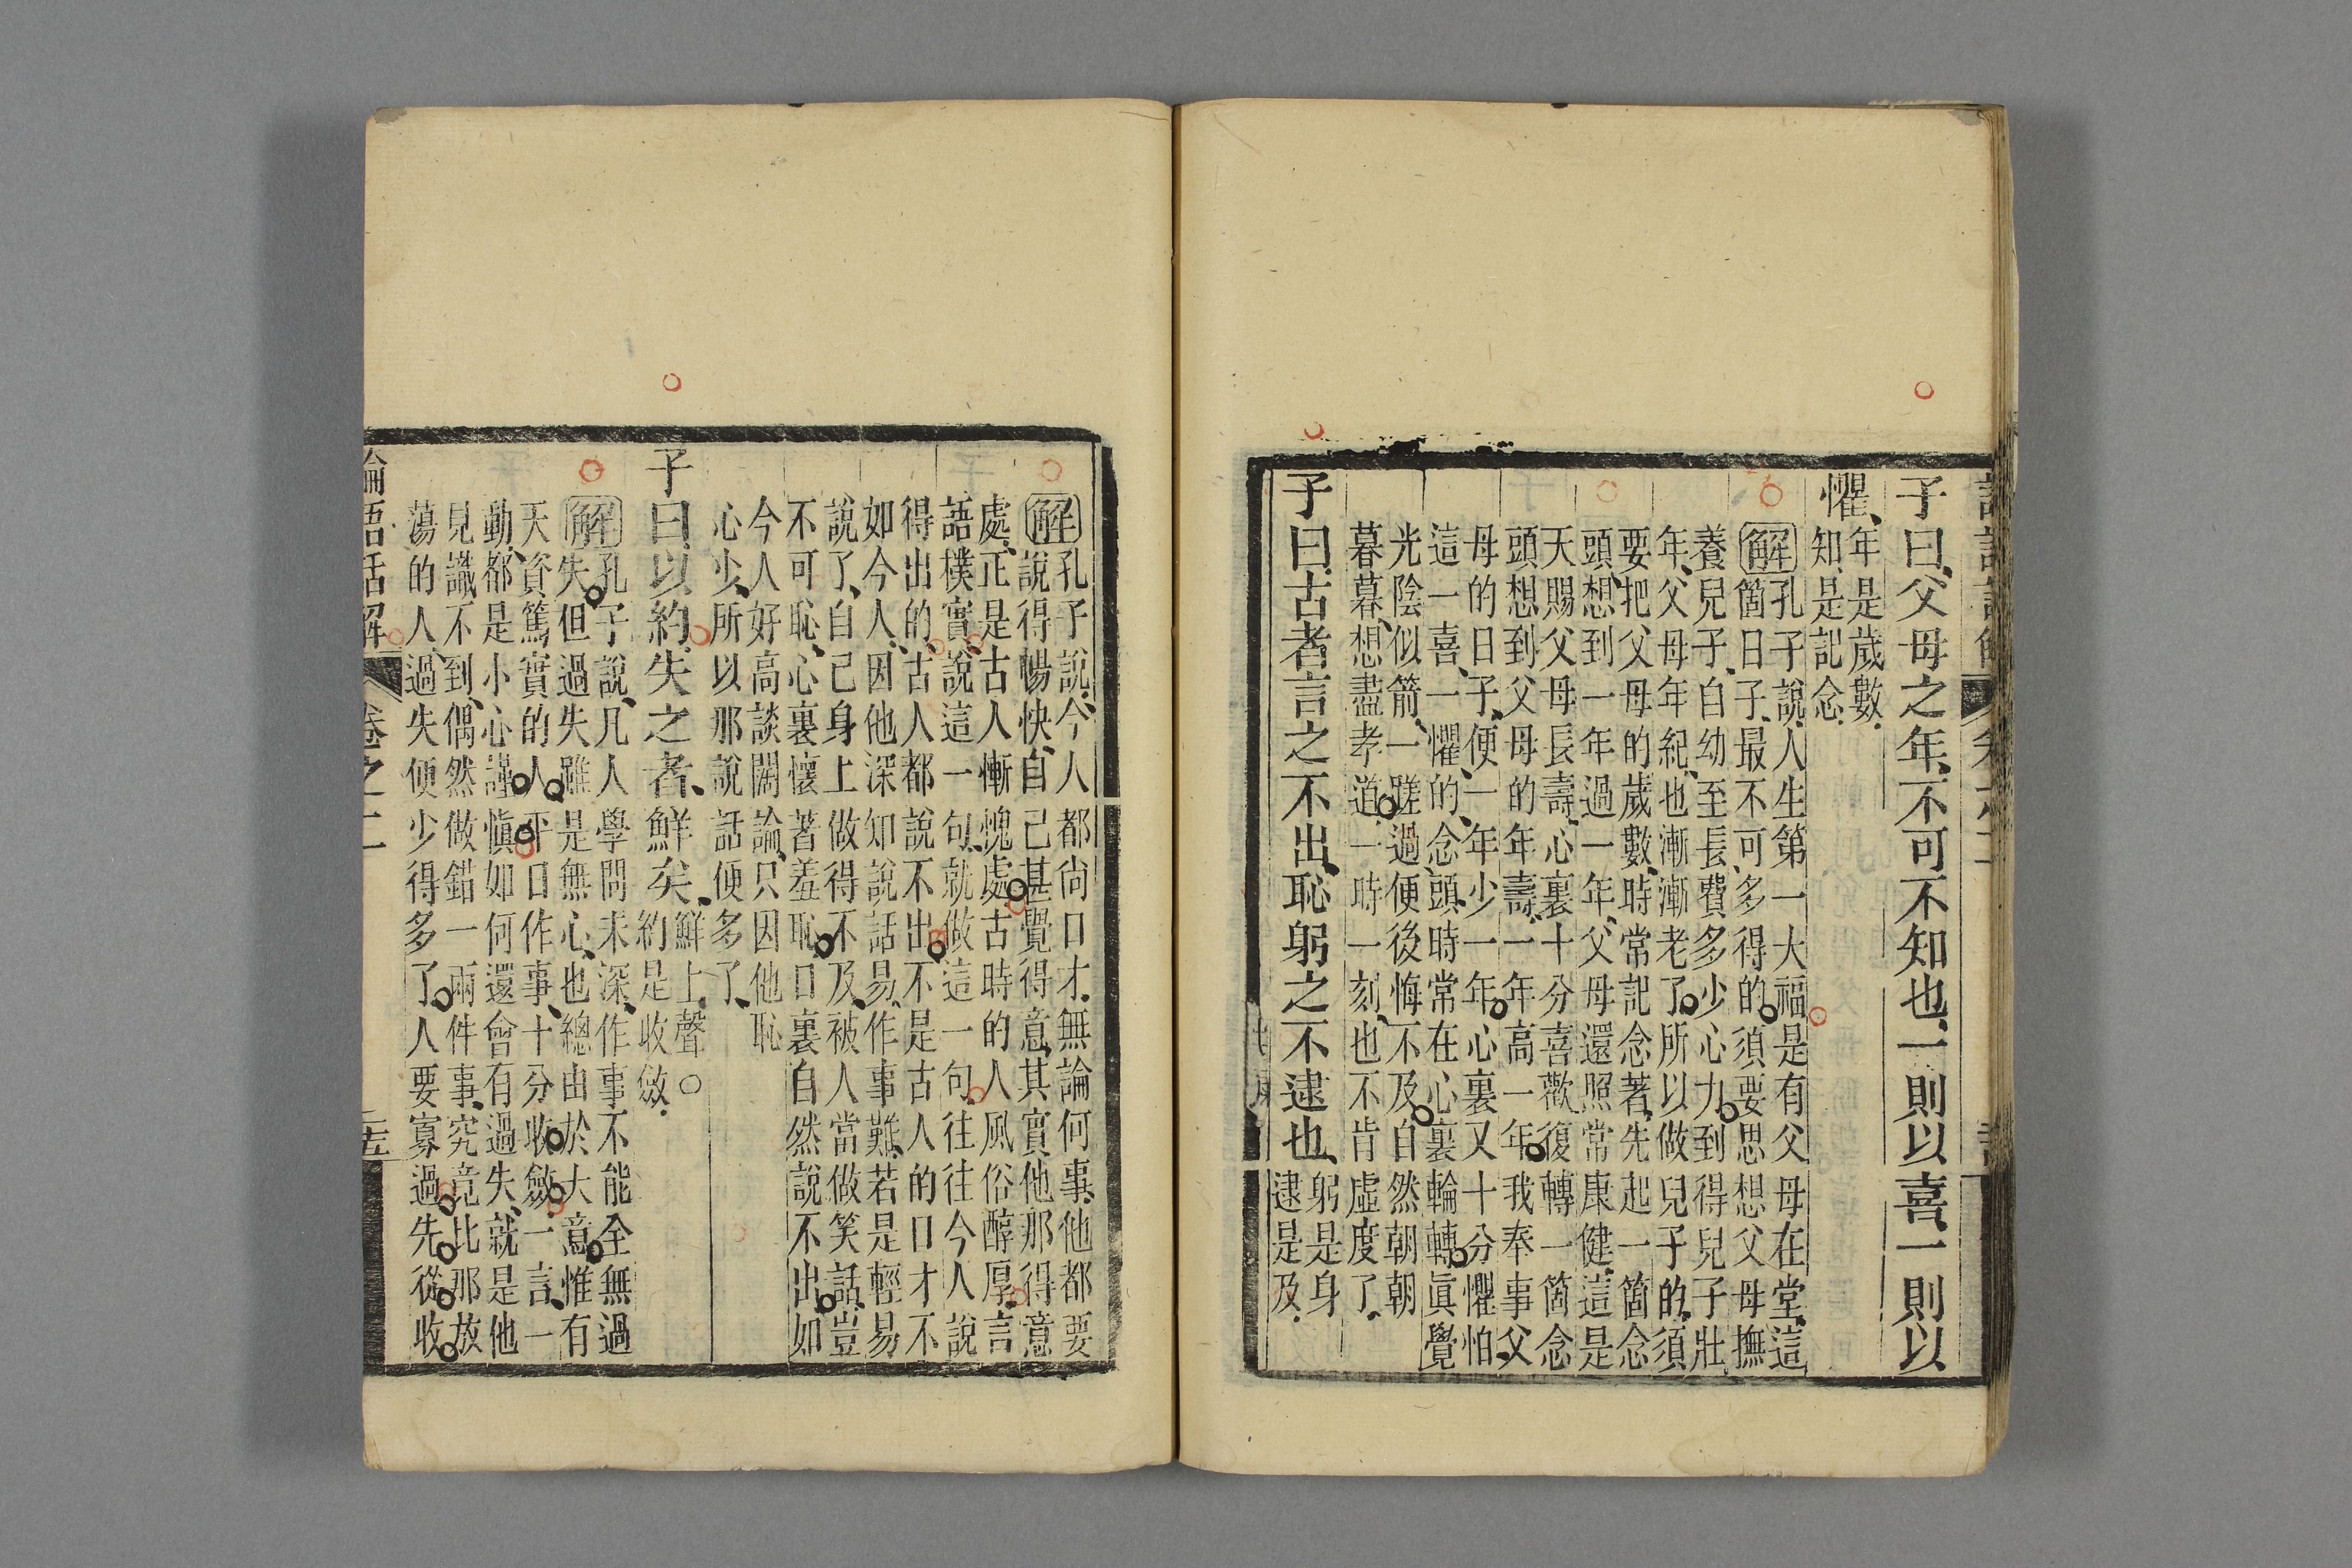 子曰、父母之年、不可不知也、一則以喜、一則以
懼、年是歲數、
知、是記念、
解孔子說、人生第一大福、是有父母在堂、這
箇日子、最不可多得的、須要思想父母撫
養兒子、自幼至長、費多少心力、到得兒子壯
年、父母年紀、也漸漸老了、所以做兒子的、須
要把父母的歲數、時常記念著、先起一箇念
頭、想到一年過一年、父母還照常康健、這是
天賜父母長壽、心裏十分喜歡、復轉一箇念
頭想到父母的年壽、一年高一年、我奉事父
母的日子、便一年少一年、心裏又十分懼怕、
這一喜、一懼的念頭、時常在心裏輪轉、眞覺
光陰似箭、一蹉過、便後悔不及、自然朝朝
暮暮、想盡孝道、一時一刻、也不肯虛度了、
子曰、古者言之不出、恥躬之不逮也、躬是身
逮是及、
解孔子說、今人都尙口才、無論何事、他都要
說得暢快、自己甚覺得意、其實他那得意
處、正是古人慚愧處、古時的人、風俗醇厚、言
語樸實、說這一句、就做這一句、往往今人說
得出的、古人都說不出、不是古人的口才不
如今人、因他深知說話易、作事難、若是輕易
說了、自己身上做得不及、被人當做笑話、豈
不可恥、心裏懷著羞恥、口裏自然說不出、如
今人好高談闊論、只因他恥
心少、所以那說話便多了、
子曰、以約失之者、鮮矣、鮮上聲○
約是收斂、
解孔子說、凡人學問未深、作事不能全無過
失、但過失雖是無心、也總由於大意、惟有
天資篤實的人、平日作事、十分收斂、一言、一
動、都是小心謹愼、如何還會有過失、就是他
見識不到、偶然做錯一兩件事、究竟比那放
蕩的人、過失便少得多了、人要寡過、先從收
論語話解 卷之二 二十五